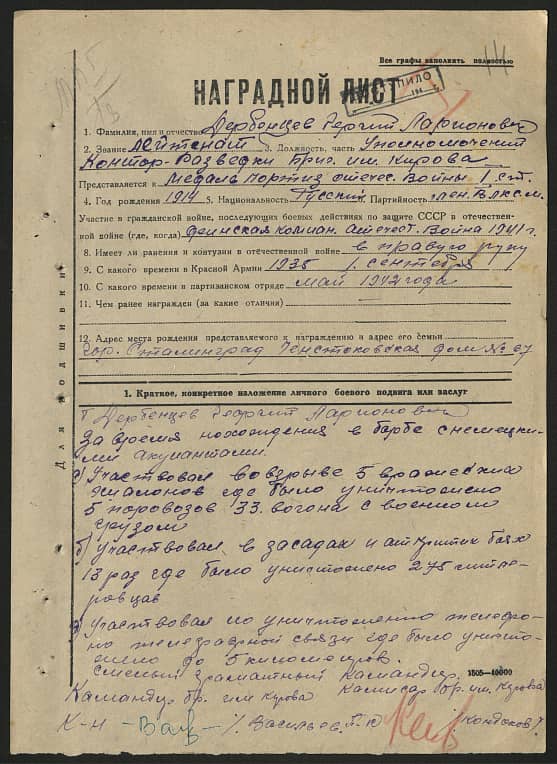 Все графы заполнять полностью
14
НАГРАДНОЙ ЛИСТ
1. Фамилия, имя и отчество Дербенцев Георгий Ларионович
2. Звание лейтенант 3. Должность, часть Уполномоченый
Контор-Разведки Бриг. им. Кирова
Представляется к Медаль Партиз. отечес. Войны I ст.
4. Год рождения 1914 5. Национальность Русский Партийность член В.Л.К.С.М.
Участие в гражданской войне, последующих боевых действиях по защите СССР в отечествен-
ной войне (где, когда) финская компан. отечест. Война 1941 г.
8. Имеет ли ранения и контузии в отечественной войне в правую руку
9. С какого времени в Красной Армии 1935 1. сентября
10. С какого времени в партизанском отряде май 1942 года
11. Чем ранее награжден (за какие отличия)
12. Адрес места рождения представляемого к награждению и адрес его семьи
гор. Сталинград Ченстоховская дом № 67
Для подшивки
1. Краткое, конкретное изложение личного боевого подвига или заслуг
Т Дербенцев Георгий Ларионович
За время нахождения в борбе с немецки-
ми акупантами.
а) Участвовал во взрыве 5 вражеских
эшалонов где было уничтожено
5 паровозов 33. вогона с военым
грузом
б) Участвовал в засадах и открытих боях
13 раз где было уничтожено 275 гитле-
ровцев
в) Участвовал по уничтожению
железнодорожной связи где было уничто-
жено до 5 километров.
смелый грамотный Командир.
1505—10000
Командир бр. им Кирова Комисар бр. им. Кирова
К-н /Васильев. /Кондаков/